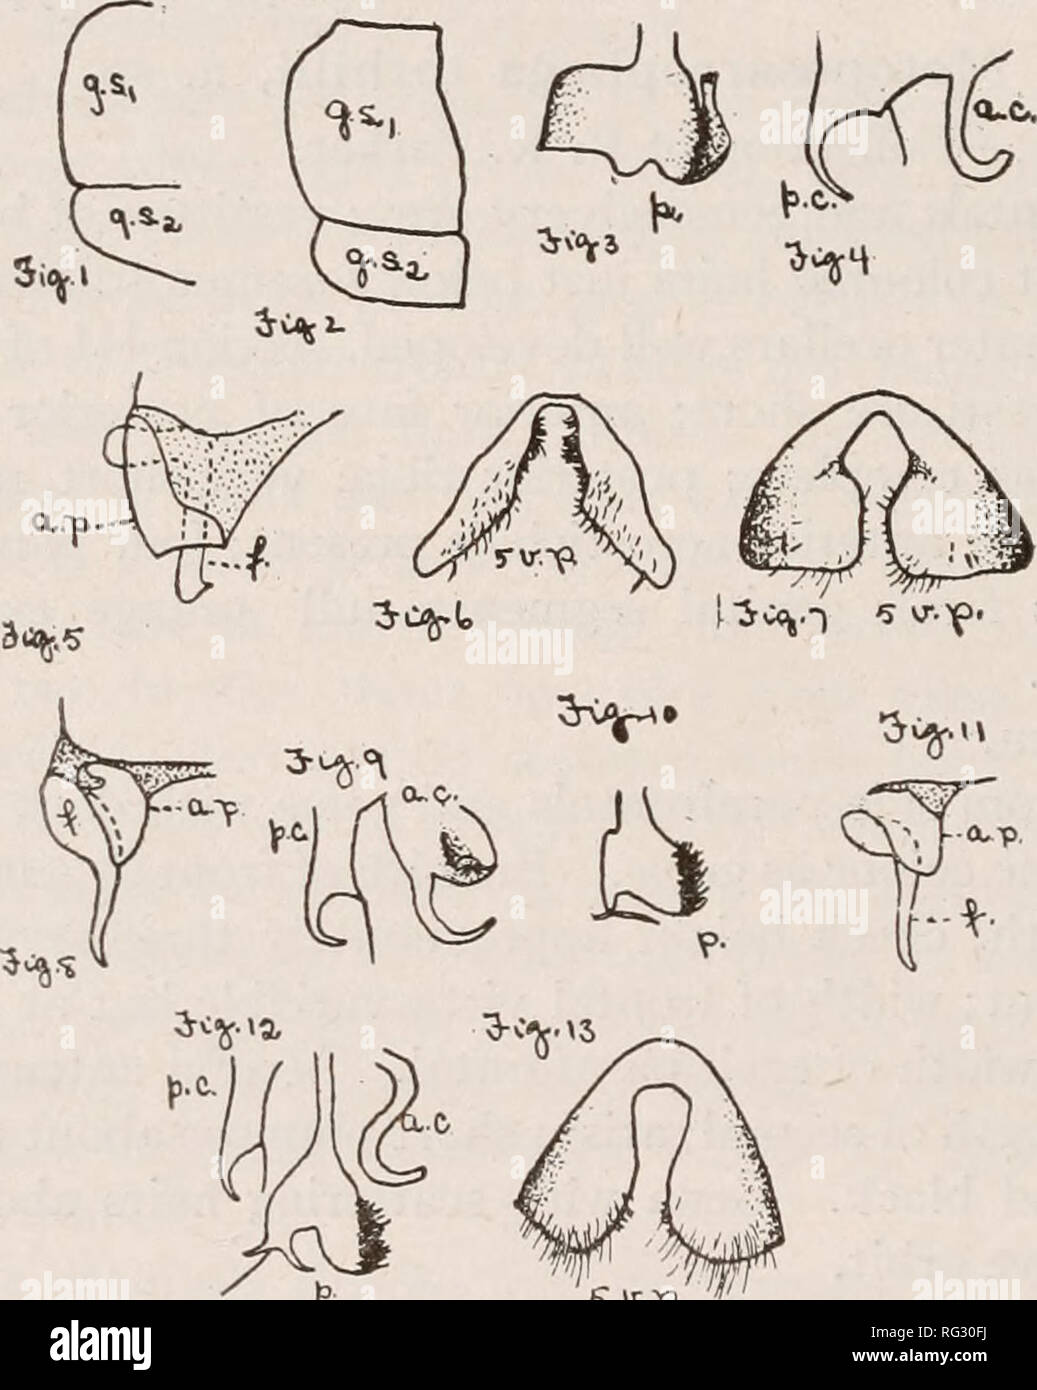 g.s₁
g.s₂
Fig. 1
g.s₁
g.s₂
Fig 2
p.
Fig 3
p.c.
a.c.
Fig 4
a.p.
f.
Fig. 5
5 v. p.
Fig. 6
Fig. 7
5 v. p.
f
a.p.
Fig. 8
Fig. 9
p.c.
a.c.
Fig. 10
p.
Fig. 11
a.p.
f.
Fig. 12
p.c.
a.c
p.
Fig. 13
5 v. p.
alamy
alamy
Image ID: RG30FJ
www.alamy.com